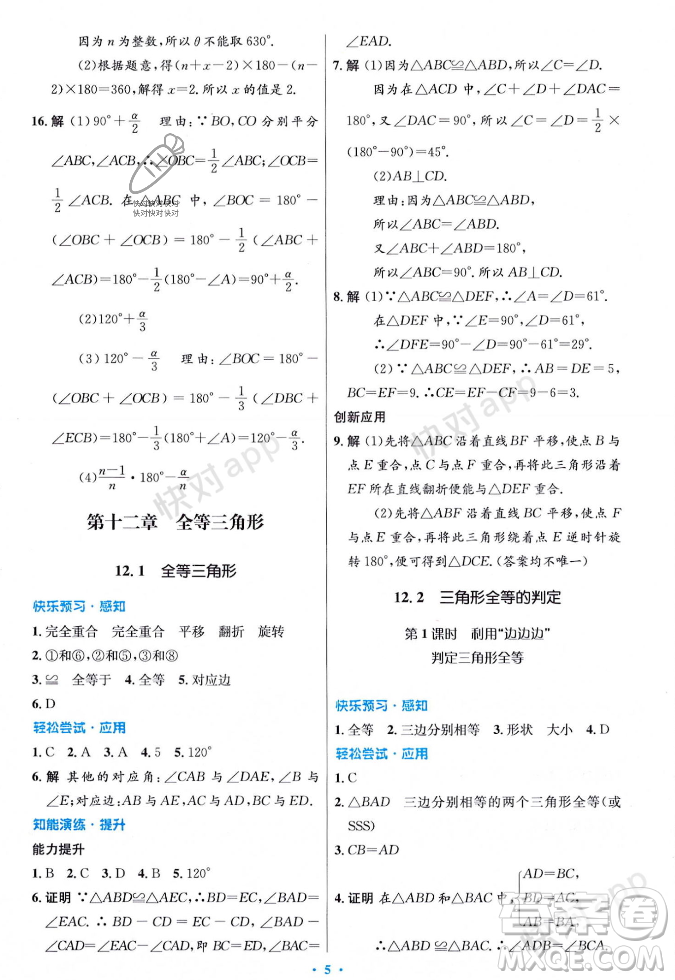 因为 n 为整数，所以 θ 不能取 630°.
(2)根据题意，得(n+x-2)×180-(n-
2)×180=360，解得 x=2. 所以 x 的值是 2.
16. 解 (1)90°+α/2 理由：∵BO,CO 分别平分
∠ABC,∠ACB,∴∠OBC=1/2∠ABC,∠OCB=
1/2∠ACB. 在△ABC 中，∠BOC=180°-
(∠OBC+∠OCB)=180°-1/2(∠ABC+
∠ACB)=180°-1/2(180°-∠A)=90°+α/2
(2)120°+α/3
(3)120°-α/3 理由：∠BOC=180°-
(∠DBC+∠ECB)=180°-1/3(∠DBC+
∠ECB)=180°-1/3(180°+∠A)=120°-α/3.
(4)(n-1)/n·180°-α/n
第十二章 全等三角形
12.1 全等三角形
快乐预习·感知
1. 完全重合 完全重合 平移 翻折 旋转
2. ①和⑥ ②和④ ③和⑧
3. ≌ 全等于 4. 全等 5. 对应边
6. D
轻松尝试·应用
1. C 2. A 3. A 4. 5 5. 120°
6. 解 其他的对应角：∠CAB 与∠DAE,∠B 与
∠E；对应边：AB 与 AE,AC 与 AD,BC 与 ED.
知能演练·提升
能力提升
1. B 2. C 3. D 4. B 5. 120°
6. 证明 ∵△ABD≌△AEC,∴BD=EC,∠BAD=
∠EAC. ∴BD-CD=EC-CD,∠BAD-
∠CAD=∠EAC-∠CAD,即 BC=ED,∠BAC=
∠EAD.
7. 解 (1)因为△ABC≌△DAE,所以∠C=∠DAE.
因为在△ACD 中，∠C+∠D+∠DAC=
180°,∠D=∠DAC=90°,所以∠C=1/2×
(180°-90°)=45°.
(2)AB⊥CD.
理由：因为△ABC≌△ABD,
所以∠ABC=∠ABD.
又∠ABC+∠ABD=180°,
所以∠ABC=90°. 所以 AB⊥CD.
8. 解 (1)∵△ABC≌△DEF,∴∠A=∠D=61°.
在△DEF 中，∵∠E=90°,∠D=61°,
∴∠DFE=90°-61°=29°.
(2)∵△ABC≌△DEF,∴AB=DE=5,
BC=EF=9. ∴CF=EF-EC=9-6=3.
创新应用
9. 解 (1)先将△ABC 沿着直线 BF 平移，使点 B 与
点 E 重合，点 C 与点 F 重合，再将此三角形沿着
EF 所在的直线翻折便能与△DEF 重合.
(2)先将△ABC 沿着直线 BE 平移，使点 B 与
点 E 重合，再将此三角形绕着点 E 逆时针旋
转 180°,便可得到△DCE. (答案均不唯一)
12.2 三角形全等的判定
第1课时 利用“边边边”
判定三角形全等
快乐预习·感知
1. 全等 2. 三边分别相等 3. 形状 大小 4. D
轻松尝试·应用
1. C
2. △BAD 三边分别相等的两个三角形全等(或
SSS)
3. CB=AD
4. 证明 在△ABD 和△BAC 中，
AD=BC,
AB=BA,
BD=AC,
∴△ABD≌△BAC. ∴∠ADB=∠BCA.
5
快对快对快对
快对快对快对
快对app
快对app
快对app
答案圈